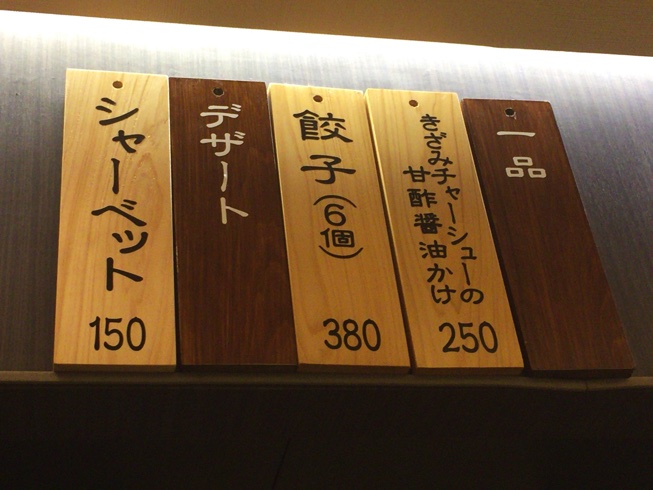 一品
きざみチャーシューの
甘酢醤油かけ
250
餃子(6個)
380
デザート
シャーベット
150